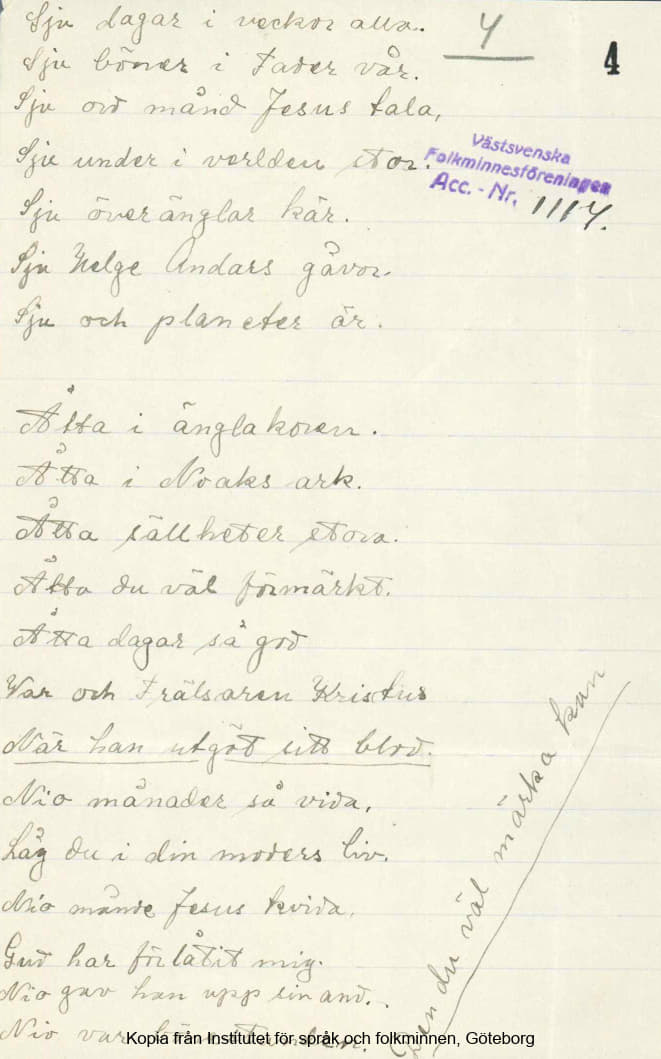 Sju dagar i veckor alla.
4
4
Sju böner i Fader vår.
Sju ord månd Jesus tala,
Västsvenska
Folkminnesföreningen
Acc. - Nr. 1114.
Sju under i verlden stor.
Sju överänglar kär.
Sju Helge Andars gåvor.
Sju och planeter är.
Åtta i änglakoren.
Åtta i Noaks ark.
Åtta sällheter stora.
Åtta du väl förmärkt.
Åtta dagar så god
Var och Frälsaren Kristus
När han utgöt sitt blod.
Nio månader så vida,
Låg du i din moders liv.
Nio månde Jesus kvida,
Gud har förlåtit mig.
Nio gav han upp sin and.
Nio var
den du väl märka kan
Kopia från Institutet för språk och folkminnen, Göteborg